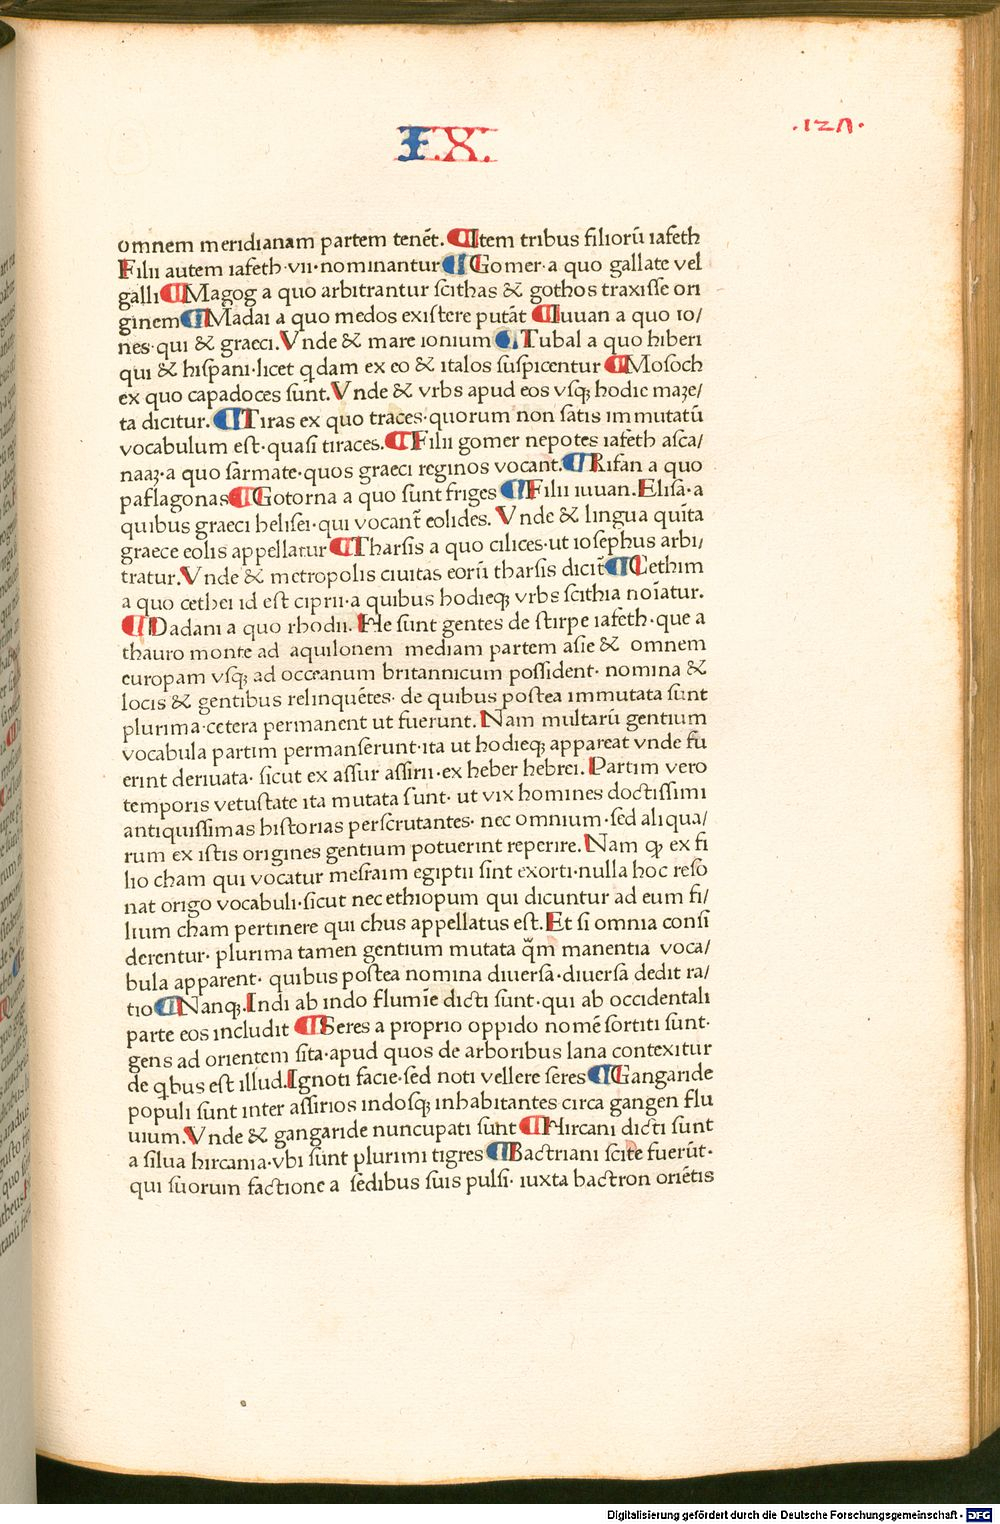 I.X.
.127.
omnem meridianam partem tenēt. ¶ Item tribus filiorū iafeth
Filii autem iafeth·vii·nominantur ¶ Gomer·a quo gallate vel
galli ¶ Magog a quo arbitrantur ſcithas & gothos traxiſſe ori
ginem ¶ Madai a quo medos exiſtere putāt ¶ Iuuan a quo io/
nes·qui & graeci. Vnde & mare ionium ¶ Tubal a quo hiberi
qui & hiſpani·licet qdam ex eo & italos ſuſpicentur ¶ Moſoch
ex quo capadoces ſunt. Vnde & vrbs apud eos vſqꝫ hodie maꝫe/
ta dicitur. ¶ Tiras ex quo traces·quorum non ſatis immutatū
vocabulum eſt·quaſi tiraces. ¶ Filii gomer nepotes iafeth aſca/
naaꝫ·a quo ſarmate·quos graeci reginos vocant. ¶ Rifan a quo
paflagonas ¶ Gotorna a quo ſunt friges ¶ Filii iuuan. Eliſa·a
quibus graeci heliſei·qui vocant̄ eolides. Vnde & lingua quīta
graece eolis appellatur ¶ Tharſis a quo cilices·ut ioſephus arbi/
tratur. Vnde & metropolis ciuitas eorū tharſis dicit̄ ¶ Cethim
a quo cethei id eſt ciprii·a quibus hodieqꝫ vrbs ſcithia noīatur.
¶ Dadani a quo rhodii. He ſunt gentes de ſtirpe iafeth·que a
thauro monte ad aquilonem mediam partem aſie & omnem
europam vſqꝫ ad occeanum britannicum poſſident· nomina &
locis & gentibus relinquētes· de quibus poſtea immutata ſunt
plurima·cetera permanent ut fuerunt. Nam multarū gentium
vocabula partim permanſerunt·ita ut hodieqꝫ appareat vnde fu
erint deriuata· ſicut ex aſſur aſſirii·ex heber hebrei. Partim vero
temporis vetuſtate ita mutata ſunt· ut vix homines doctiſſimi
antiquiſſimas hiſtorias perſcrutantes· nec omnium·ſed aliqua/
rum ex iſtis origines gentium potuerint reperire. Nam ꝙ ex fi
lio cham qui vocatur meſraim egiptii ſint exorti·nulla hoc reſo
nat origo vocabuli·ſicut nec ethiopum qui dicuntur ad eum fi/
lium cham pertinere qui chus appellatus eſt. Et ſi omnia conſi
derentur· plurima tamen gentium mutata q̄m manentia voca/
bula apparent· quibus poſtea nomina diuerſa·diuerſa dedit ra/
tio ¶ Nanqꝫ. Indi ab indo flumīe dicti ſunt·qui ab occidentali
parte eos includit ¶ Seres a proprio oppido nomē ſortiti ſunt·
gens ad orientem ſita·apud quos de arboribus lana contexitur
de qbus eſt illud. Ignoti facie·ſed noti vellere ſeres ¶ Gangaride
populi ſunt inter aſſirios indoſqꝫ inhabitantes circa gangen flu
uium. Vnde & gangaride nuncupati ſunt ¶ Hircani dicti ſunt
a ſilua hircania·vbi ſunt plurimi tigres ¶ Bactriani ſcite fuerūt·
qui ſuorum factione a ſedibus ſuis pulſi· iuxta bactron oriētis
Digitalisierung gefördert durch die Deutsche Forschungsgemeinschaft - DFG